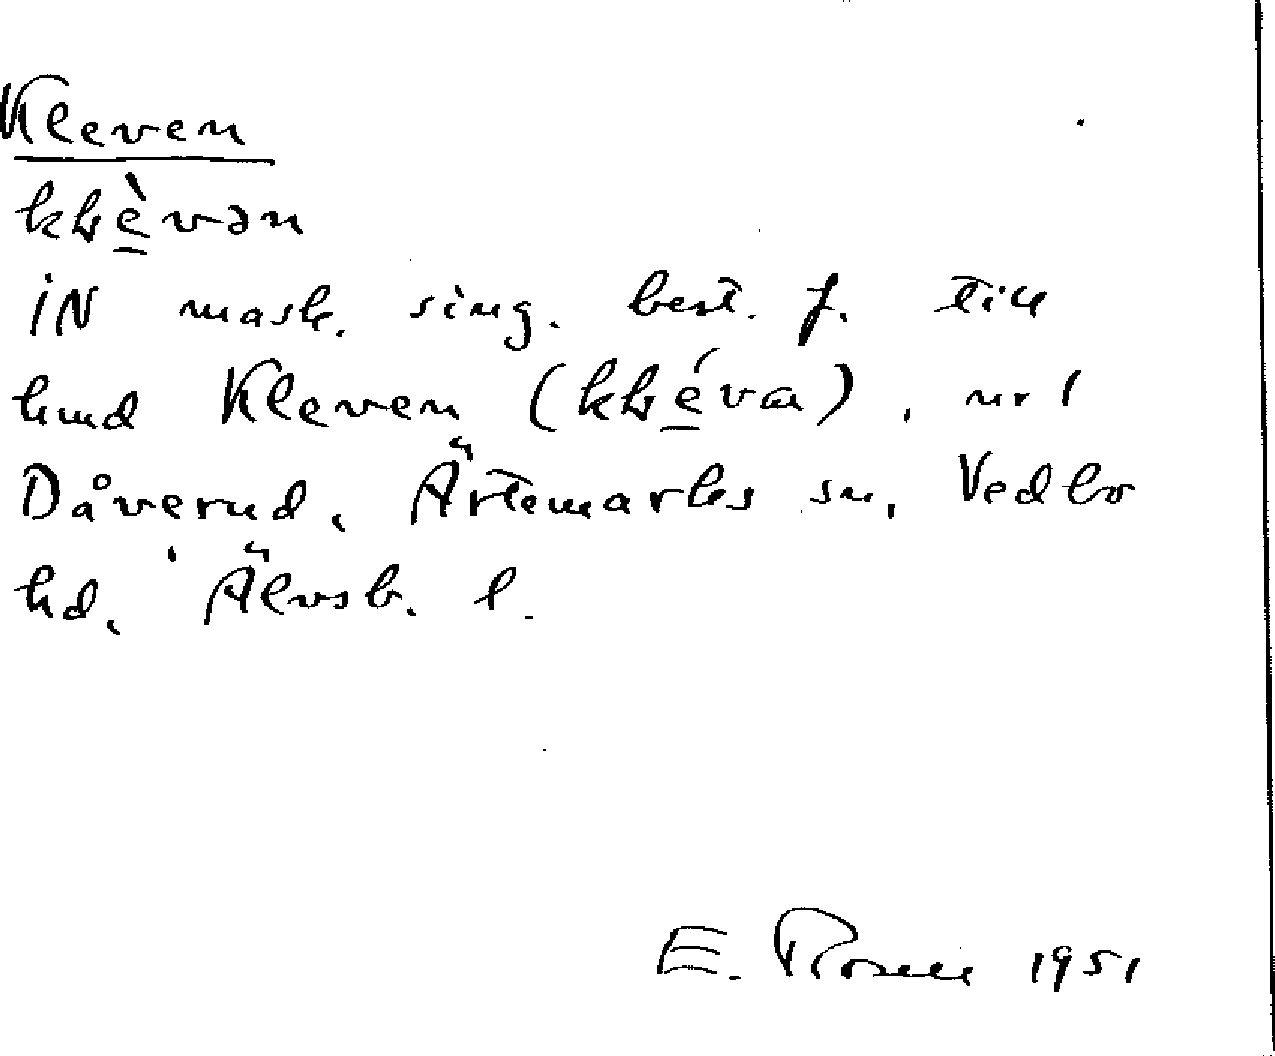 Kleven
klèvən
IN mask. sing. best. f. till
hmd Kleven (kléva), nr 1
Dåverud, Ärtemarks sn, Vedbo
hd, Älvsb. l.
E. Rosell 1951